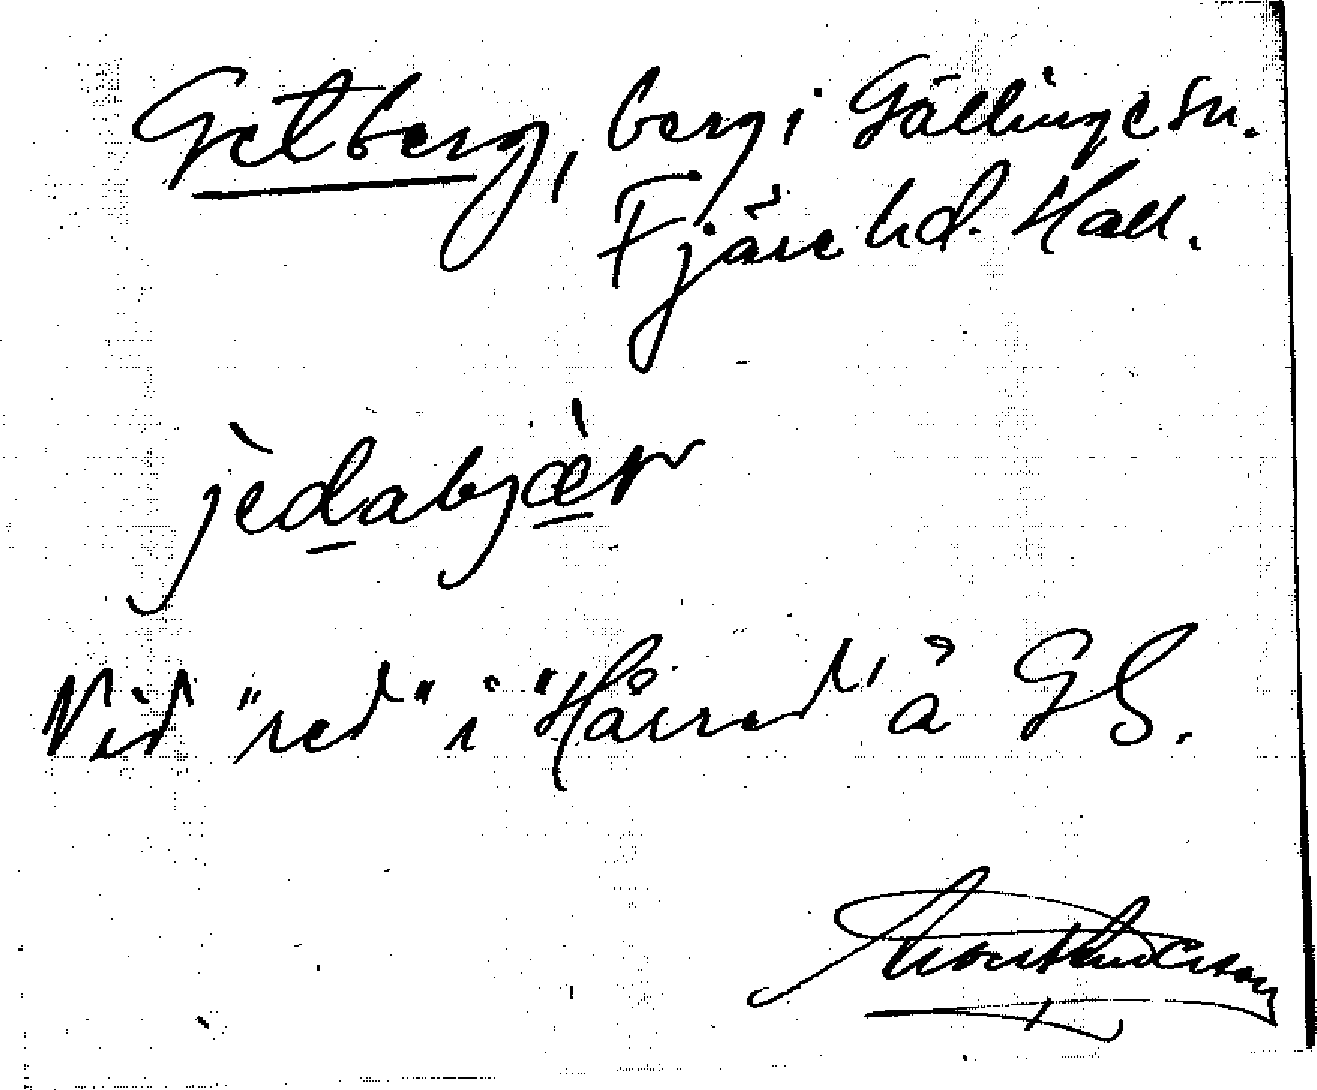 Getberg, berg i Gällinge sn.
Fjäre hd. Hall.
jèdabjæ̀r
Vid "red" i "Hårred" å GS.